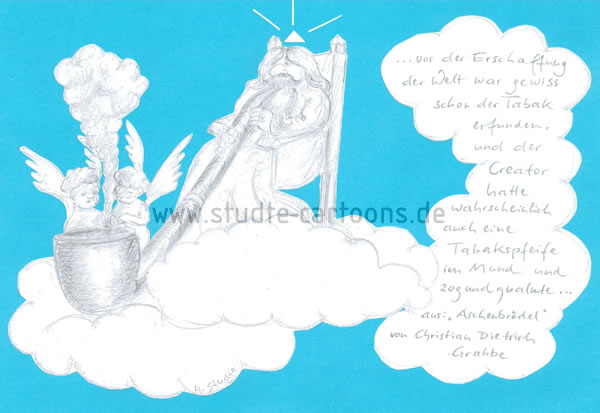 ...vor der Erschaffung
der Welt war gewiss
schon der Tabak
erfunden,
und der
Creator
hatte
wahrscheinlich
auch eine
Tabakspfeife
im Mund und
zog und qualmte...
aus: „Aschenbrödel"
von Christian Dietrich
Grabbe
www.studte-cartoons.de
H. Studte